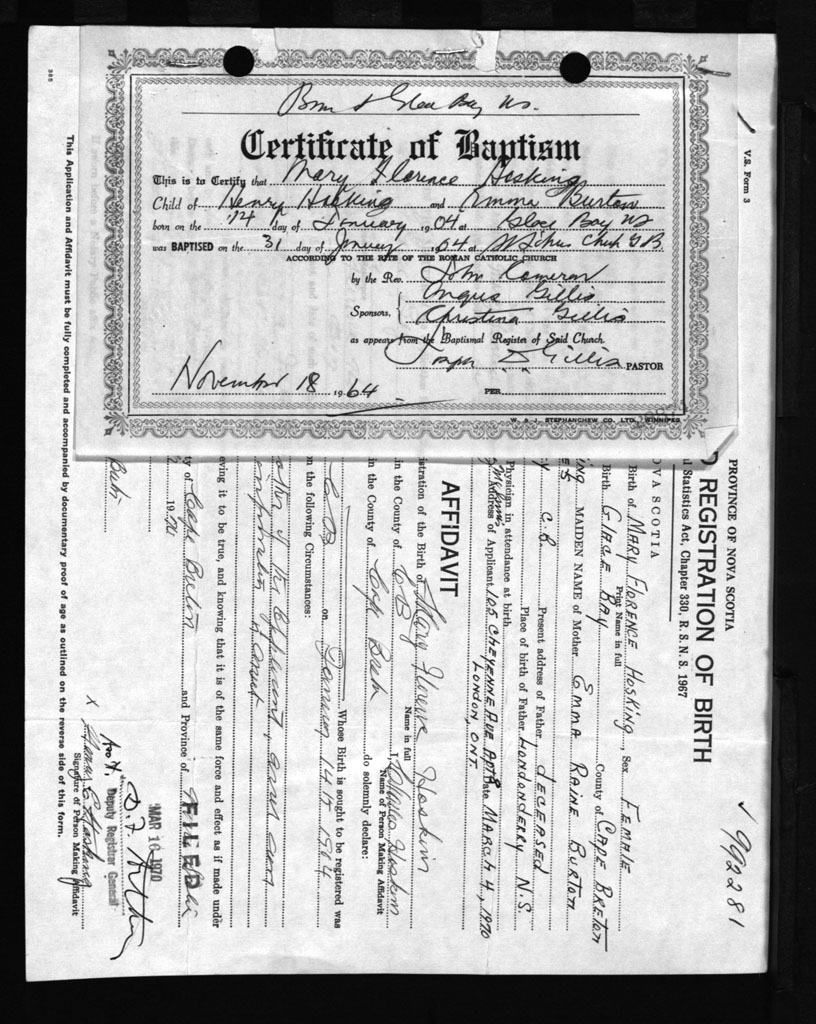 Born at Glace Bay NS.
Certificate of Baptism
This is to Certify that Mary Florence Hosking
Child of Henry Hosking and Emma Burton
born on the 14 day of January 1904 at Glace Bay NS
was BAPTISED on the 31 day of January 1904 at St Church G B
ACCORDING TO THE RITE OF THE ROMAN CATHOLIC CHURCH
by the Rev. John Cameron
Sponsors, { Angus Gillis
Christina Gillis
as appears from the Baptismal Register of Said Church.
Gillis PASTOR
November 18 1964 PER
W. & J. STEPHANCHEW CO. LTD., WINNIPEG
V.S. Form 3
992281
PROVINCE OF NOVA SCOTIA
D REGISTRATION OF BIRTH
Statistics Act, Chapter 330, R. S. N. S. 1967
OVA SCOTIA
Birth of MARY FLORENCE HOSKING, Sex FEMALE
Print Name in full
Birth GLACE BAY County of CAPE BRETON
ING MAIDEN NAME of Mother EMMA RAINE BURTON
C.B. Present address of Father DECEASED
Place of birth of Father LONDONDERRY N.S.
Physician in attendance at birth
Address of Applicant 105 CHEYENNE AVE APT 8 Date MARCH 4, 1970
LONDON, ONT.
AFFIDAVIT
istration of the Birth of Mary Florence Hoskin
Name in full
in the County of C B I, Hoskin
Name of Person Making Affidavit
in the County of Cape Breton do solemnly declare:
C B on January 14th 1904 Whose Birth is sought to be registered was
n the following Circumstances:
of the applicant
information
eving it to be true, and knowing that it is of the same force and effect as if made under
ty of Cape Breton and Province of
19
FILED
MAR 16 1970
Deputy Registrar General
X
Signature of Person Making Affidavit
This Application and Affidavit must be fully completed and accompanied by documentary proof of age as outlined on the reverse side of this form.